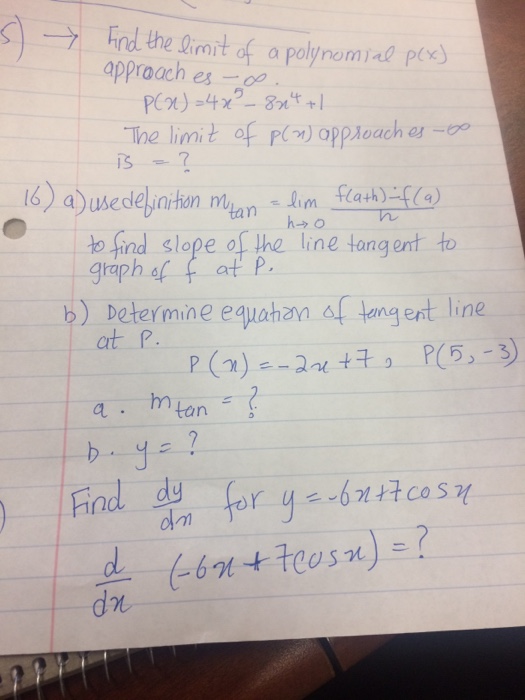 5) → Find the limit of a polynomial p(x)
approaches -∞.
P(x) = 4x⁵ - 8x⁴ + 1
The limit of p(x) approaches -∞
is = ?
16) a) use definition m_tan = lim_{h→0} f(a+h) - f(a) / h
to find slope of the line tangent to
graph of f at P.
b) Determine equation of tangent line
at P.
P(x) = -2x + 7, P(5, -3)
a. m_tan = ?
b. y = ?
) Find dy/dx for y = -6x + 7 cos x
d/dx (-6x + 7cos x) = ?